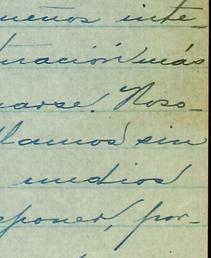 ueños inte-
mación más
narse. Noso-
llamos sin
medios
sponer, por-